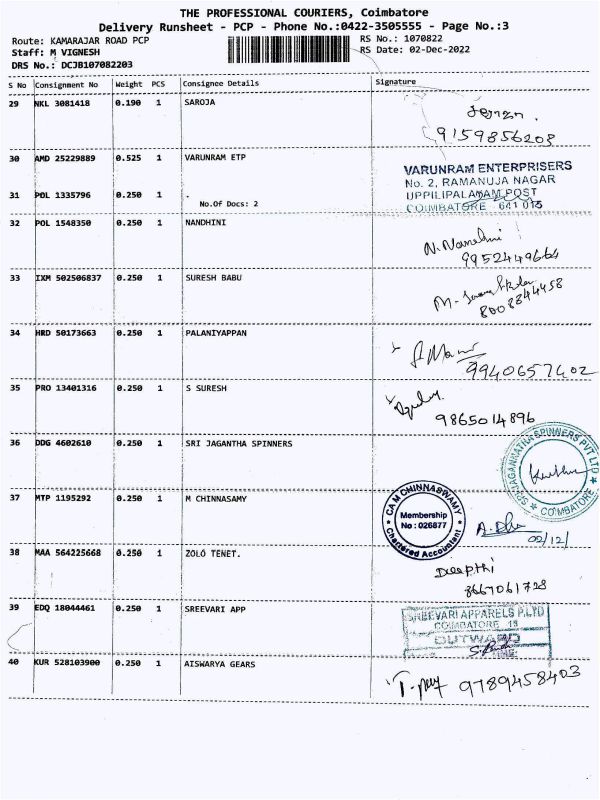 THE PROFESSIONAL COURIERS, Coimbatore
Delivery Runsheet - PCP - Phone No.:0422-3505555 - Page No.:3
Route: KAMARAJAR ROAD PCP
RS No.: 1070822
Staff: M VIGNESH
RS Date: 02-Dec-2022
DRS No.: DCJB107082203
S No Consignment No Weight PCS Consignee Details Signature
29 NKL 3081418 0.190 1 SAROJA
9159856203
30 AMD 25229889 0.525 1 VARUNRAM ETP
VARUNRAM ENTERPRISERS
No. 2, RAMANUJA NAGAR
UPPILIPALAYAM POST
COIMBATORE 641 015
31 POL 1335796 0.250 1 .
No.Of Docs: 2
32 POL 1548350 0.250 1 NANDHINI
N. Nandhini
9952449664
33 IXM 502506837 0.250 1 SURESH BABU
8008844458
34 HRD 50173663 0.250 1 PALANIYAPPAN
9940657402
35 PRO 13401316 0.250 1 S SURESH
9865014896
36 DDG 4602610 0.250 1 SRI JAGANTHA SPINNERS
SRI JAGANNATHA SPINNERS PVT LTD
COIMBATORE
37 MTP 1195292 0.250 1 M CHINNASAMY
CA M CHINNASWAMY
Membership
No : 026877
Chartered Accountant
02/12/
38 MAA 564225668 0.250 1 ZOLO TENET.
Deepthi
8667061728
39 EDQ 18044461 0.250 1 SREEVARI APP
SREEVARI APPARELS P.LTD
COIMBATORE 15
OUTWARD
40 KUR 528103900 0.250 1 AISWARYA GEARS
9789458403